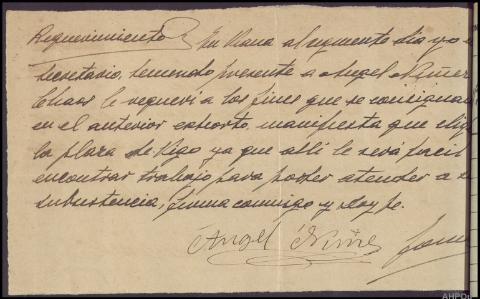 Requerimiento En Viana al siguiente día yo e
Secretario, teniendo presente a Angel Núñez
Chaos le requerí a los fines que se consignan
en el anterior exhorto, manifiesta que elige
la plaza de Vigo ya que allí le será fácil
encontrar trabajo para poder atender a s
subsistencia, firma conmigo y doy fe.
Angel Núñe
AHPOu